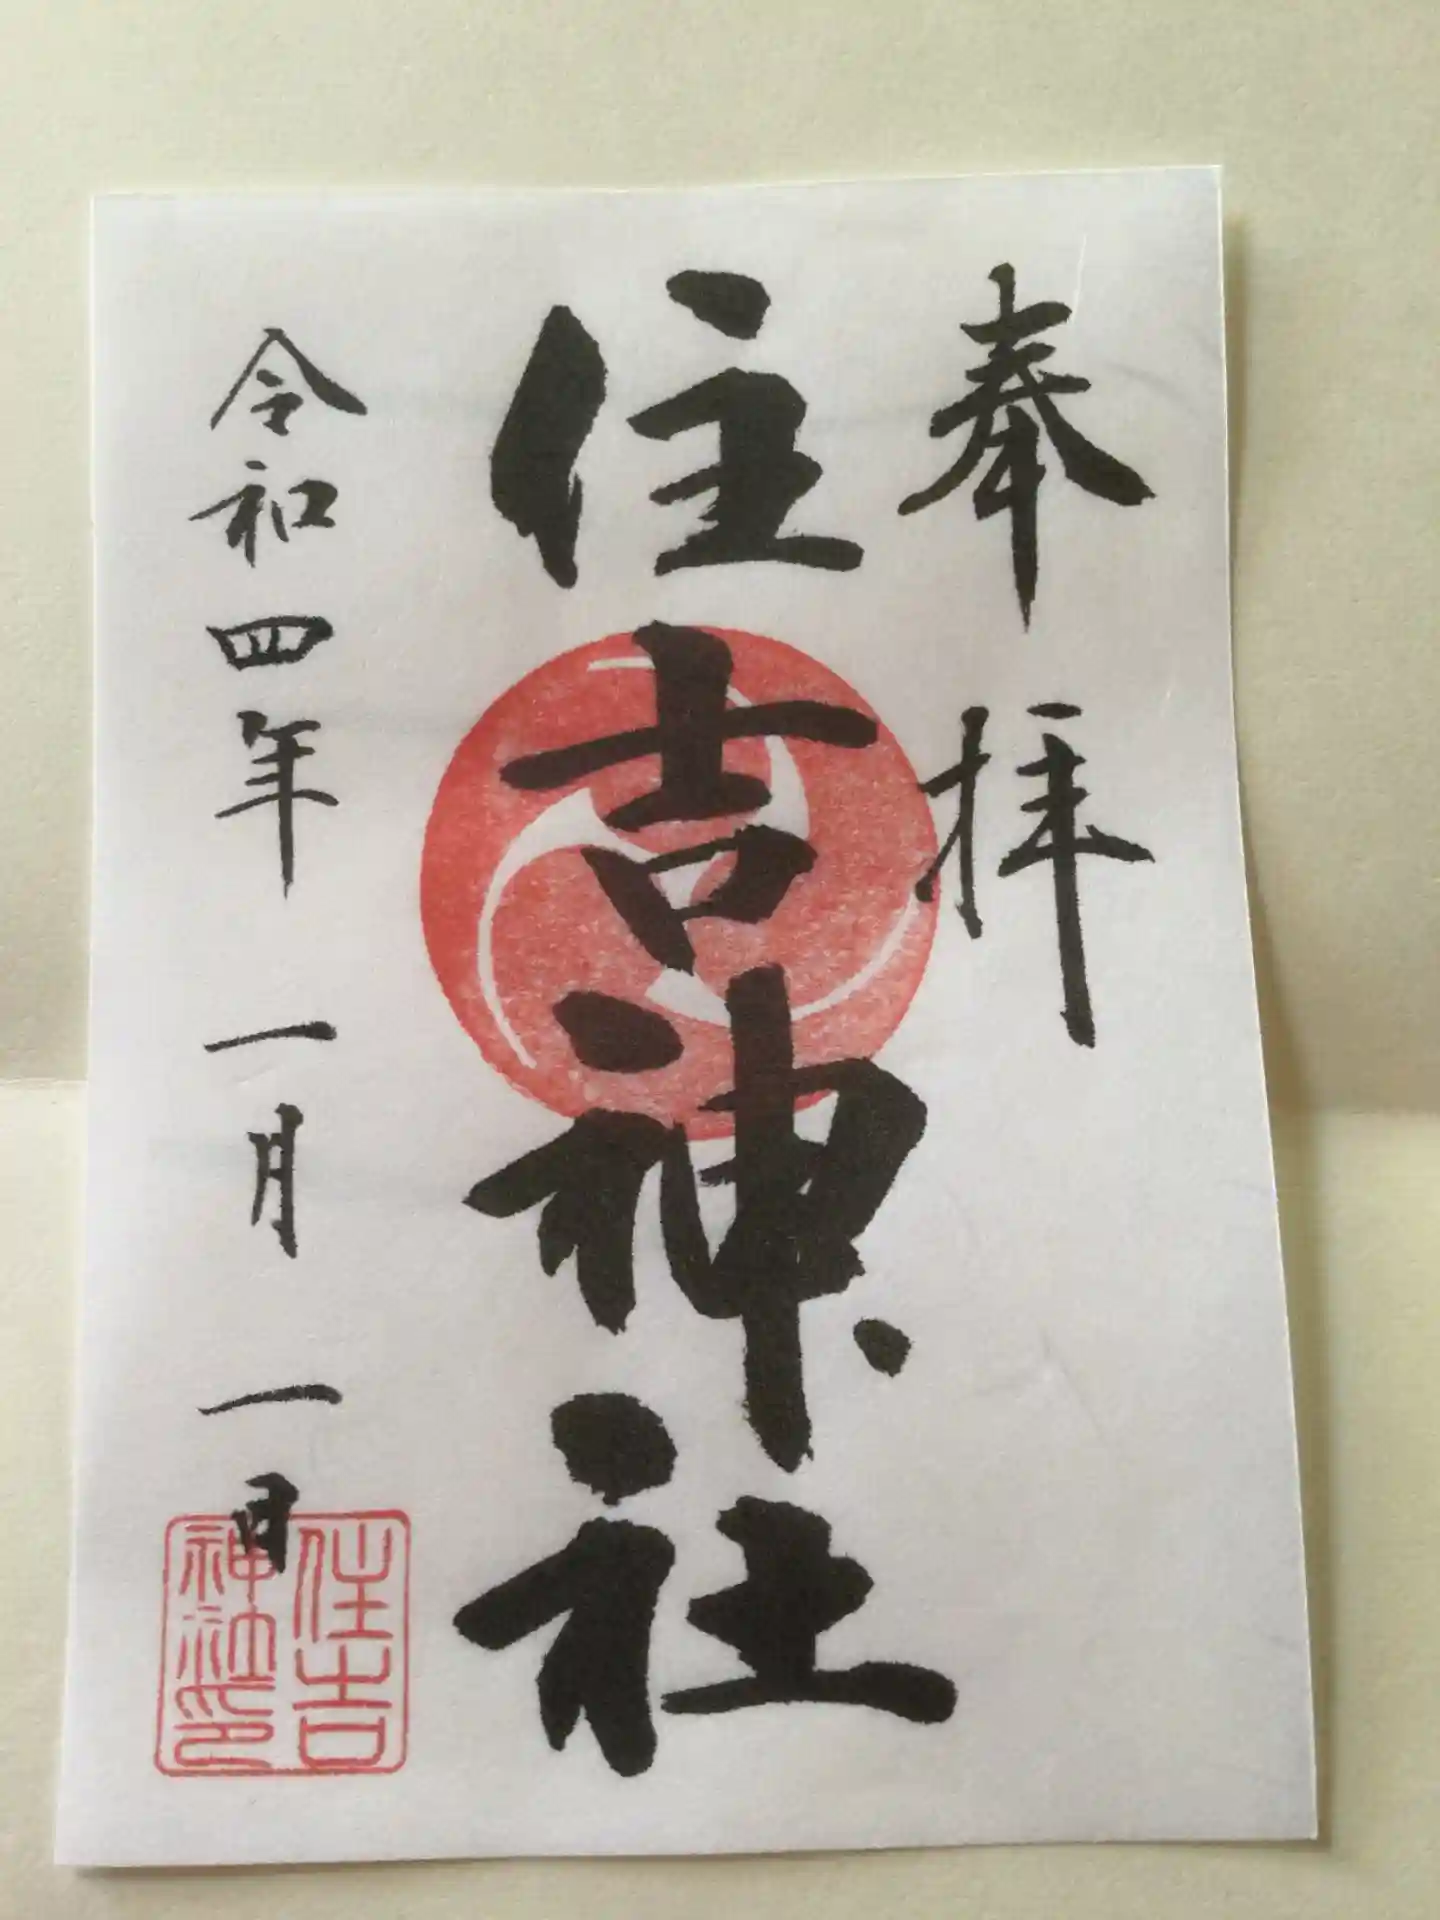 奉拝
住吉神社
令和四年一月一日
住吉
神社印